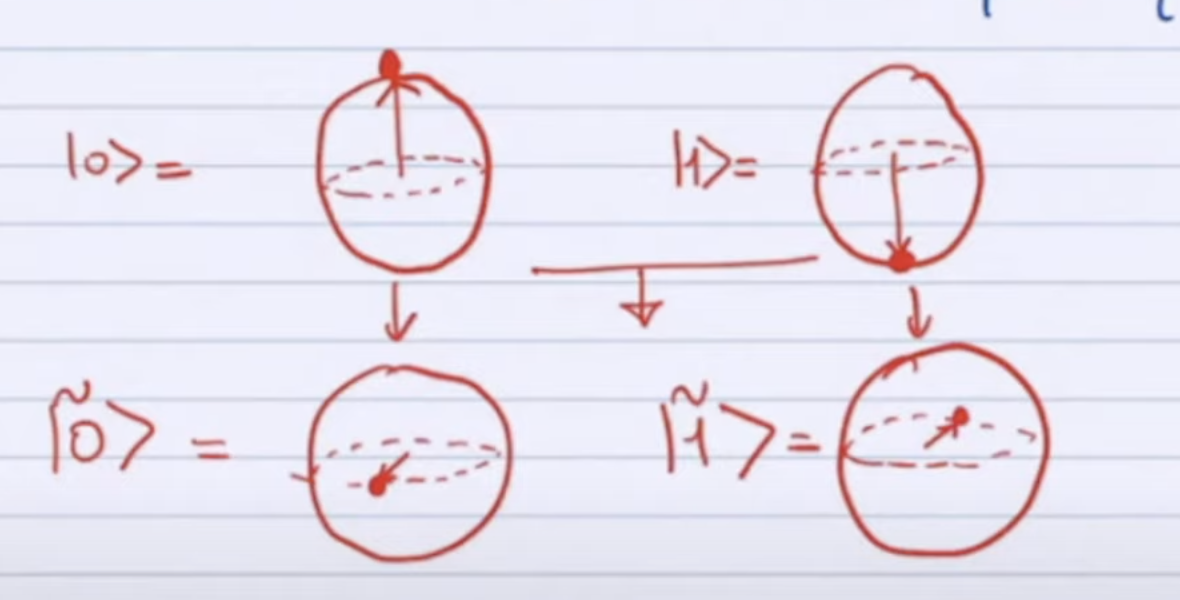 |0⟩ =
|1⟩ =
|0̃⟩ =
|1̃⟩ =